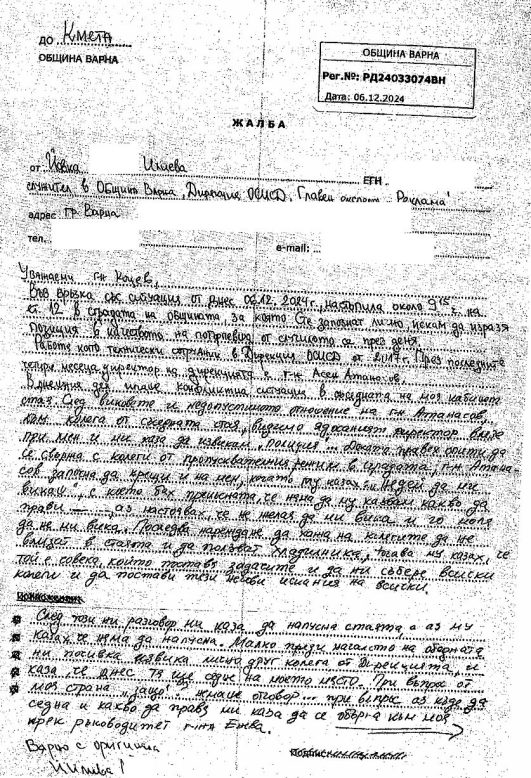 ДО Кмета
ОБЩИНА ВАРНА
ОБЩИНА ВАРНА
Рег.№: РД24033074ВН
Дата: 06.12.2024
ЖАЛБА
от Йовка Илиева ЕГН
служител в Община Варна, Дирекция ОСИСД, Главен експерт "Реклама"
адрес гр. Варна
тел. e-mail:
Уважаеми г-н Коцев,
Във връзка със ситуация от днес 06.12.2024 г., настъпила около 9¹⁵ г. на
ет. 12 в сградата на общината за която сте запознат лично, искам да изразя
позиция в качеството на потърпевш от случилото се през деня.
Работя като технически сътрудник в Дирекция ОСИСД от 2017 г. През последните
месеца директор на дирекцията е г-н Асен Атанасов.
Днешния ден имаше конфликтна ситуация в съседната на моя кабинет
стая. След виковете и недопустимото отношение на г-н Атанасов,
към колега от съседната стая, видимо ядосаният директор влезе
при мен и ми каза да извикам "полиция". Докато правех опити да
се свържа с колеги от пропускателния режим в сградата, г-н Атана-
сов започна да крещи и на мен, като му казах "Недей да ми
викаш", с което бях прекъсната, че няма да му казвам какво да
прави аз настоявах, че не желая да ми вика и го моля
да не ми вика. Последва нареждане да кажа на колегите да не
влизат в стаята и да ползват хладилника, тогава му казах, че
той е човека, който поставя задачите и да ни събере всички
колеги и да постави тези негови искания на всички.
След този ни разговор ми каза да напусна стаята, а аз му
казах, че няма да напусна. Малко преди началото на обедната
ни почивка извика лично друг колега от Дирекцията, и
каза, че днес тя ще седне на моето място. При въпрос от
моя страна "защо" нямаше отговор... при въпрос аз къде да
седна и какво да правя ми каза да се обърна към моя
пряк ръководител г-жа Енева.
Вярно с оригинала